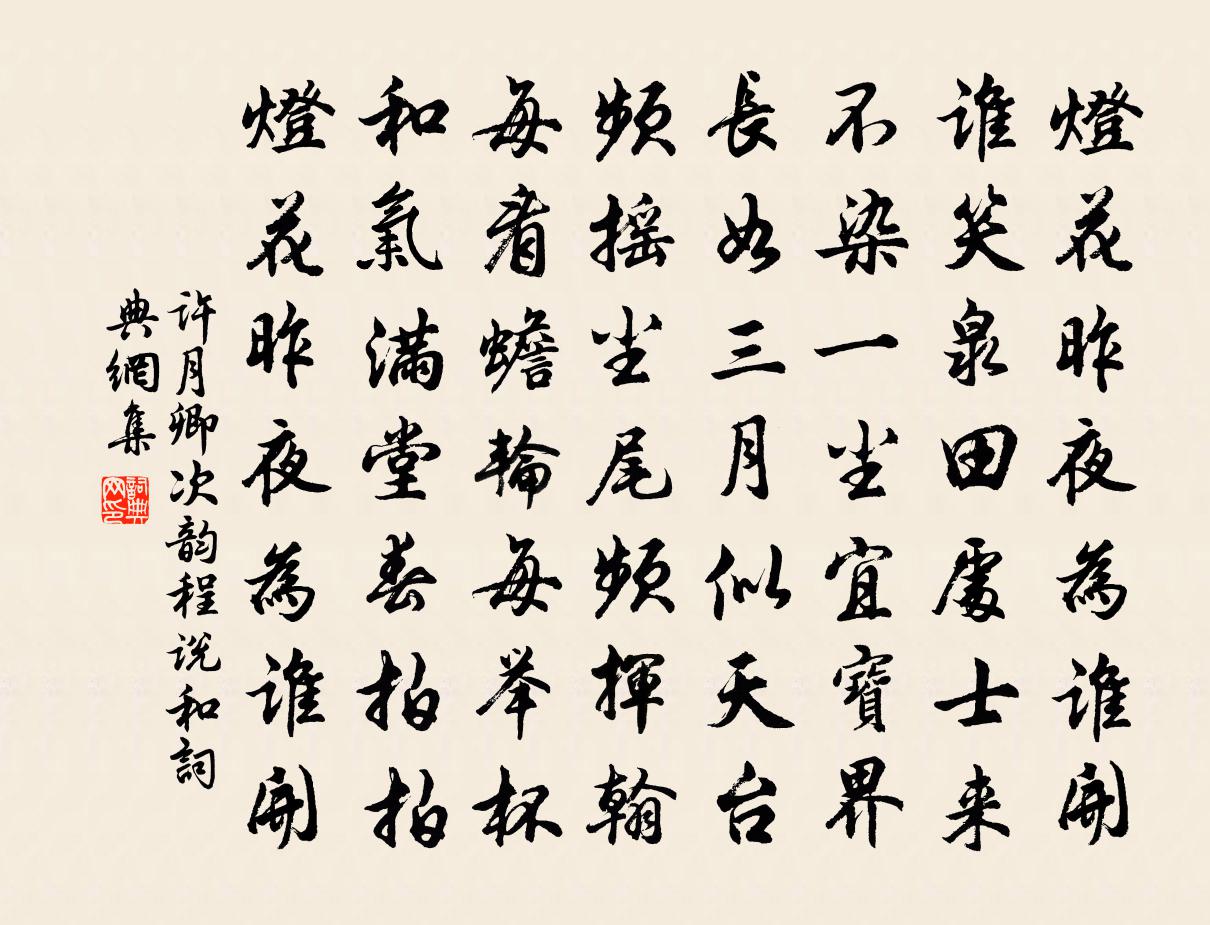 燈花昨夜為誰開
誰笑泉田處士来
不染一尘宜寶界
長如三月似天台
頻摇尘尾頻揮翰
每看蟾輪每举杯
和氣滿堂春拍拍
燈花昨夜為誰開
許月卿次韵程説和詞
典網集
詞典网印